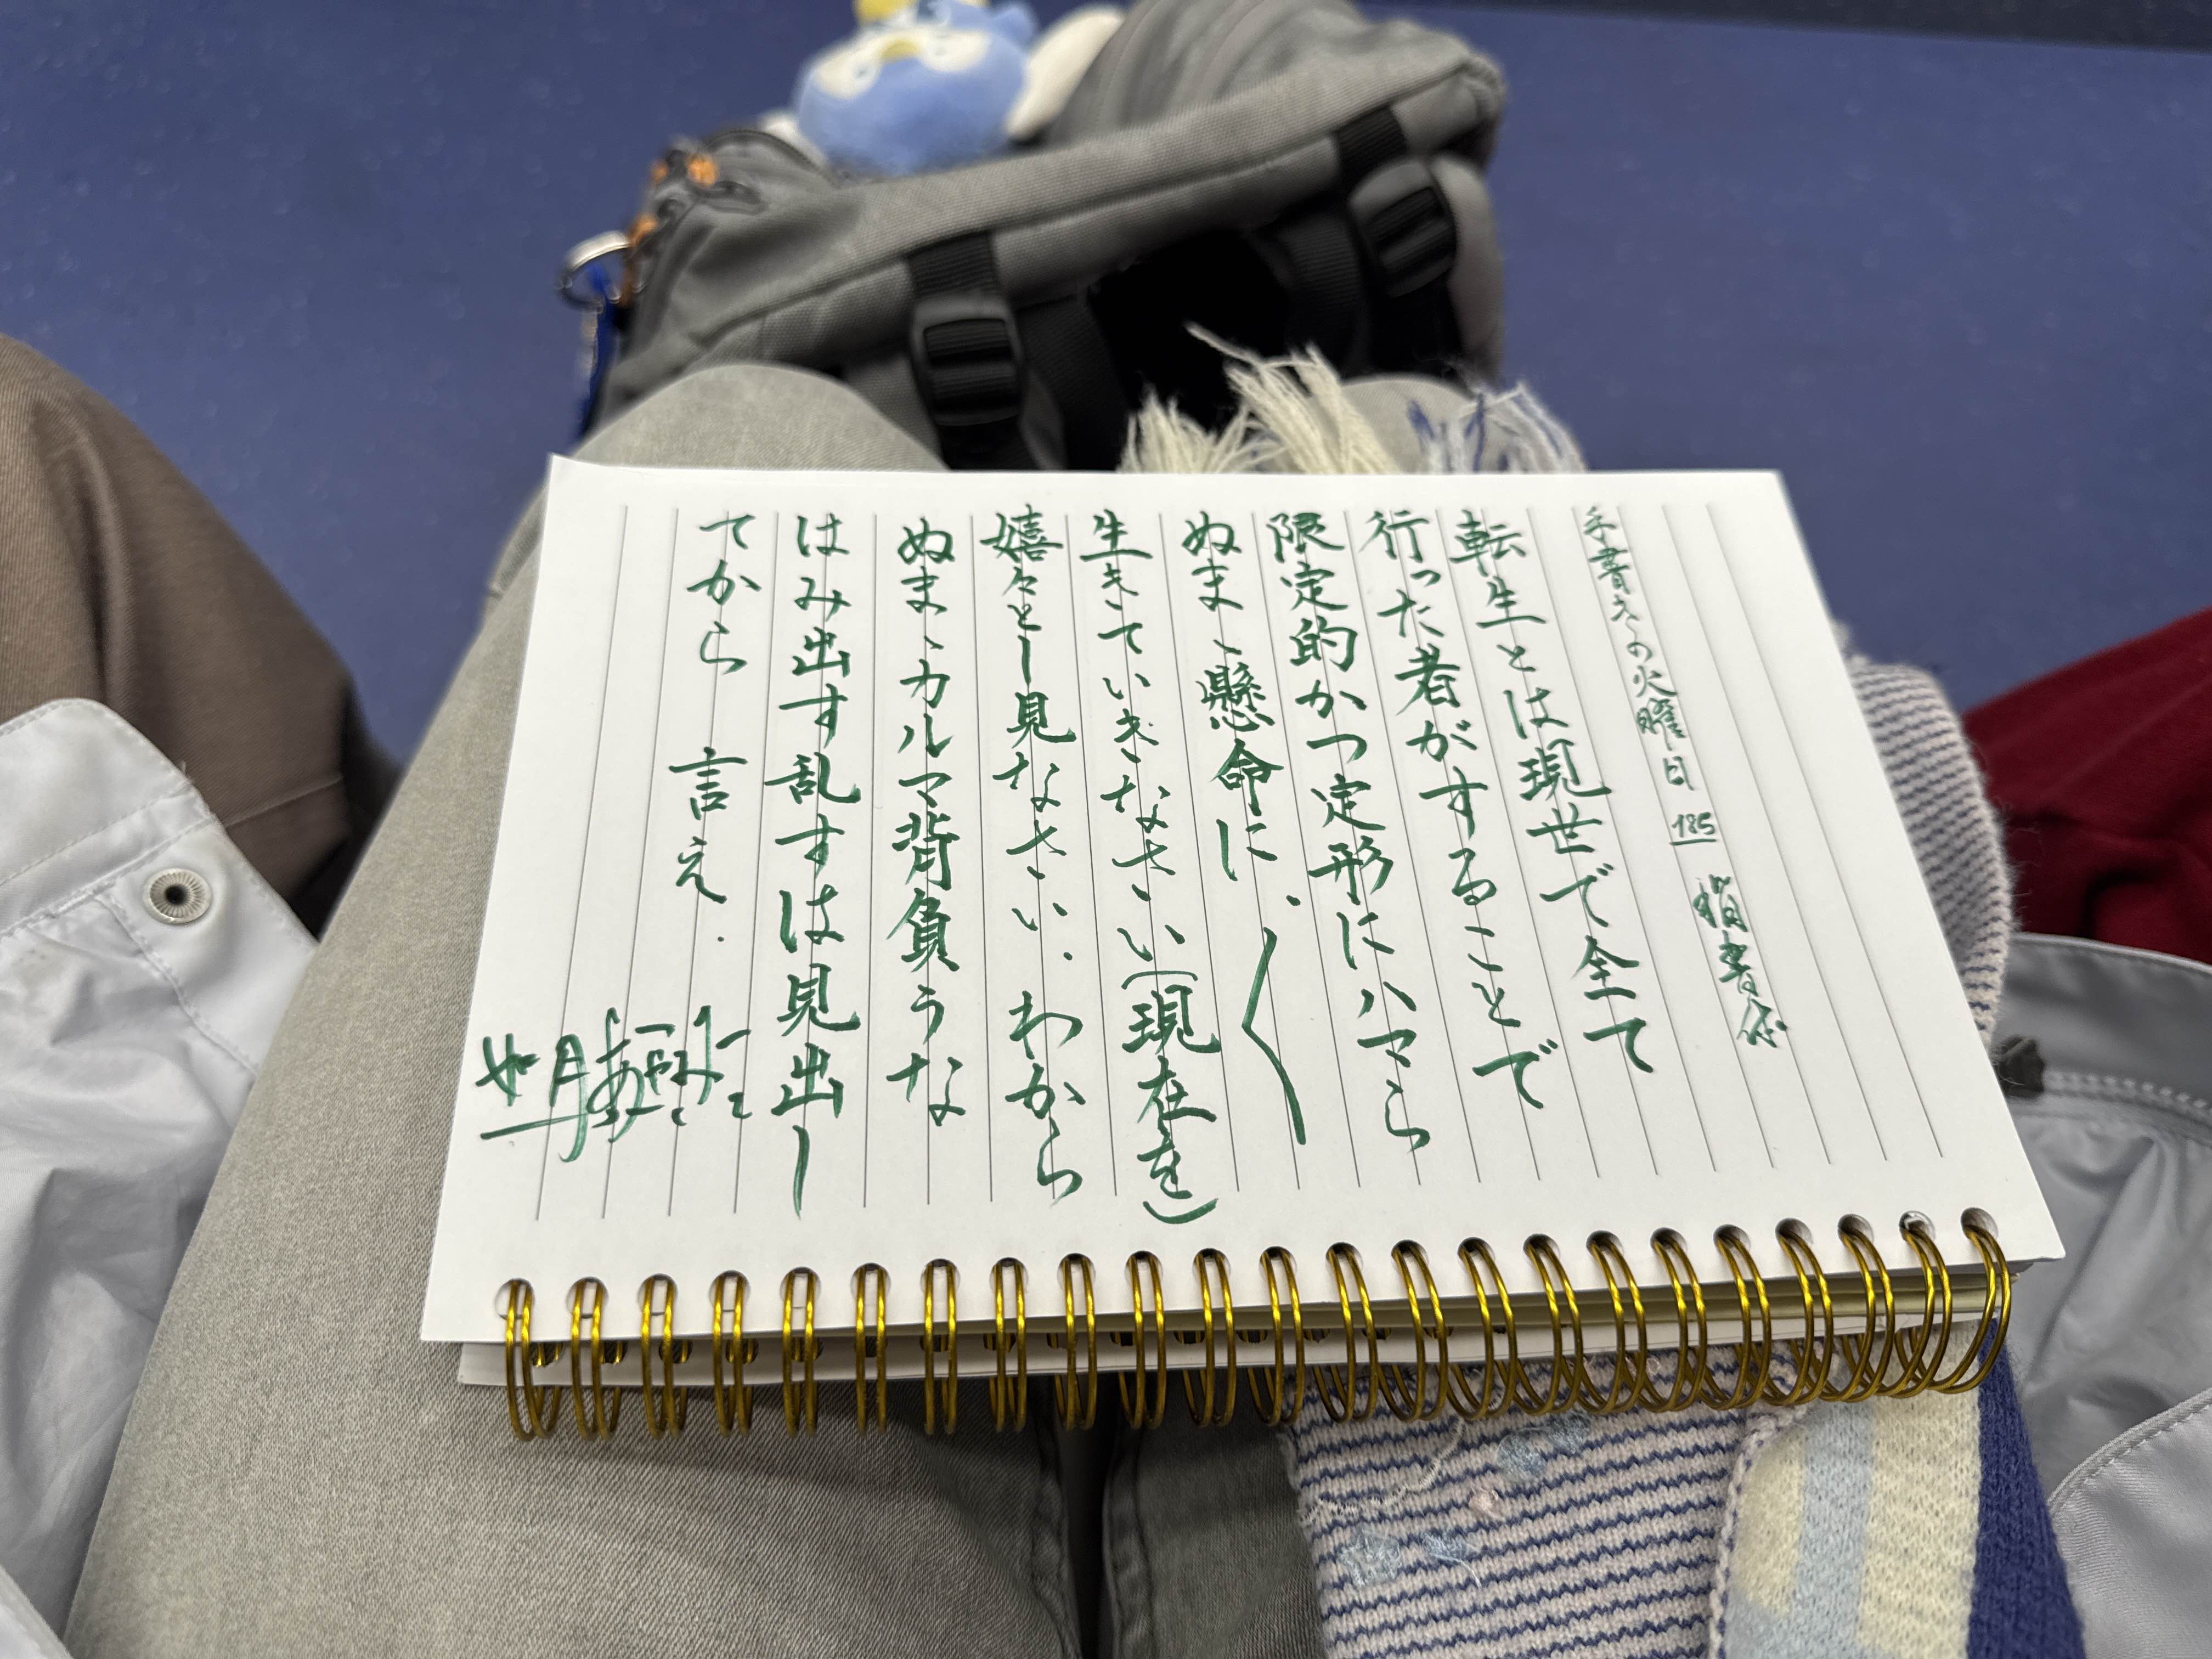 手書きの火曜日 185
転生とは現世で全て
行った者がすることで
限定的かつ定形にハマら
ぬまゝ懸命に.〱
生きていきなさい(現在を)
嬉々とし見なさい.わから
ぬまゝカルマ背負うな
はみ出す乱すは見出し
てから 言え.
如月